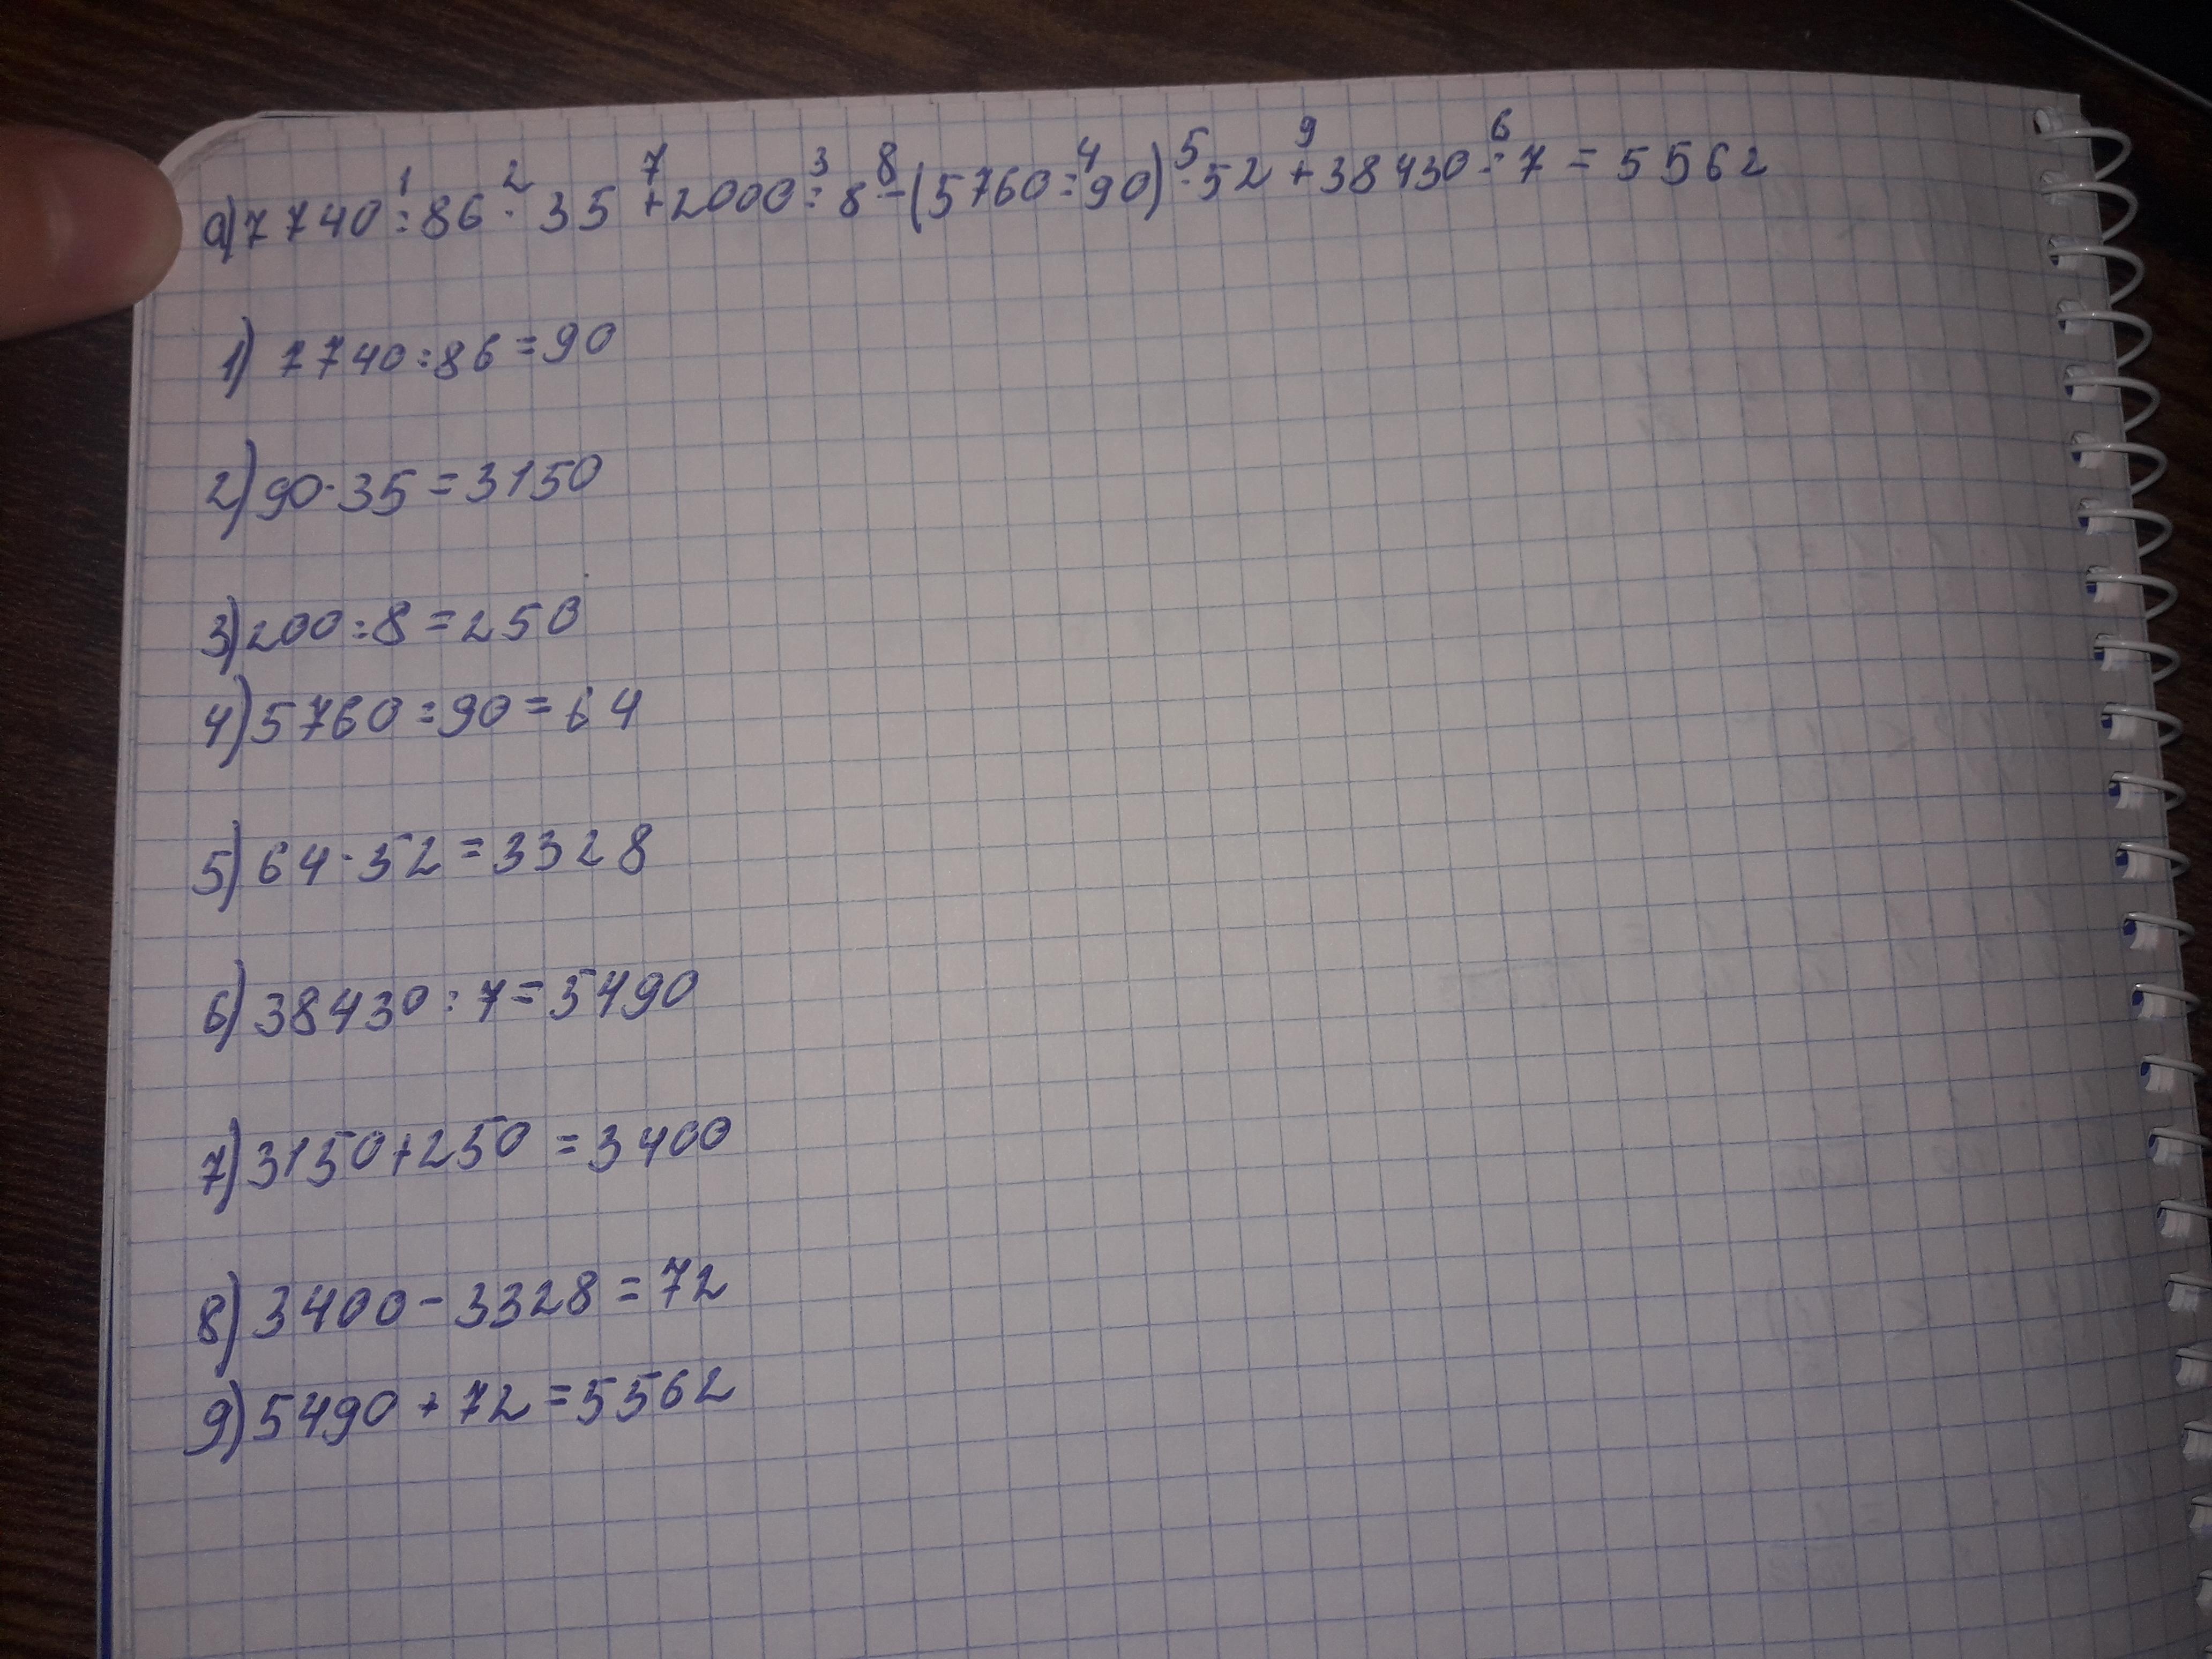 a) 7740:86·35+2000:8-(5760:90)·52+38430:7=5562
1) 7740:86=90
2) 90·35=3150
3) 200:8=250
4) 5760:90=64
5) 64·52=3328
6) 38430:7=5490
7) 3150+250=3400
8) 3400-3328=72
9) 5490+72=5562